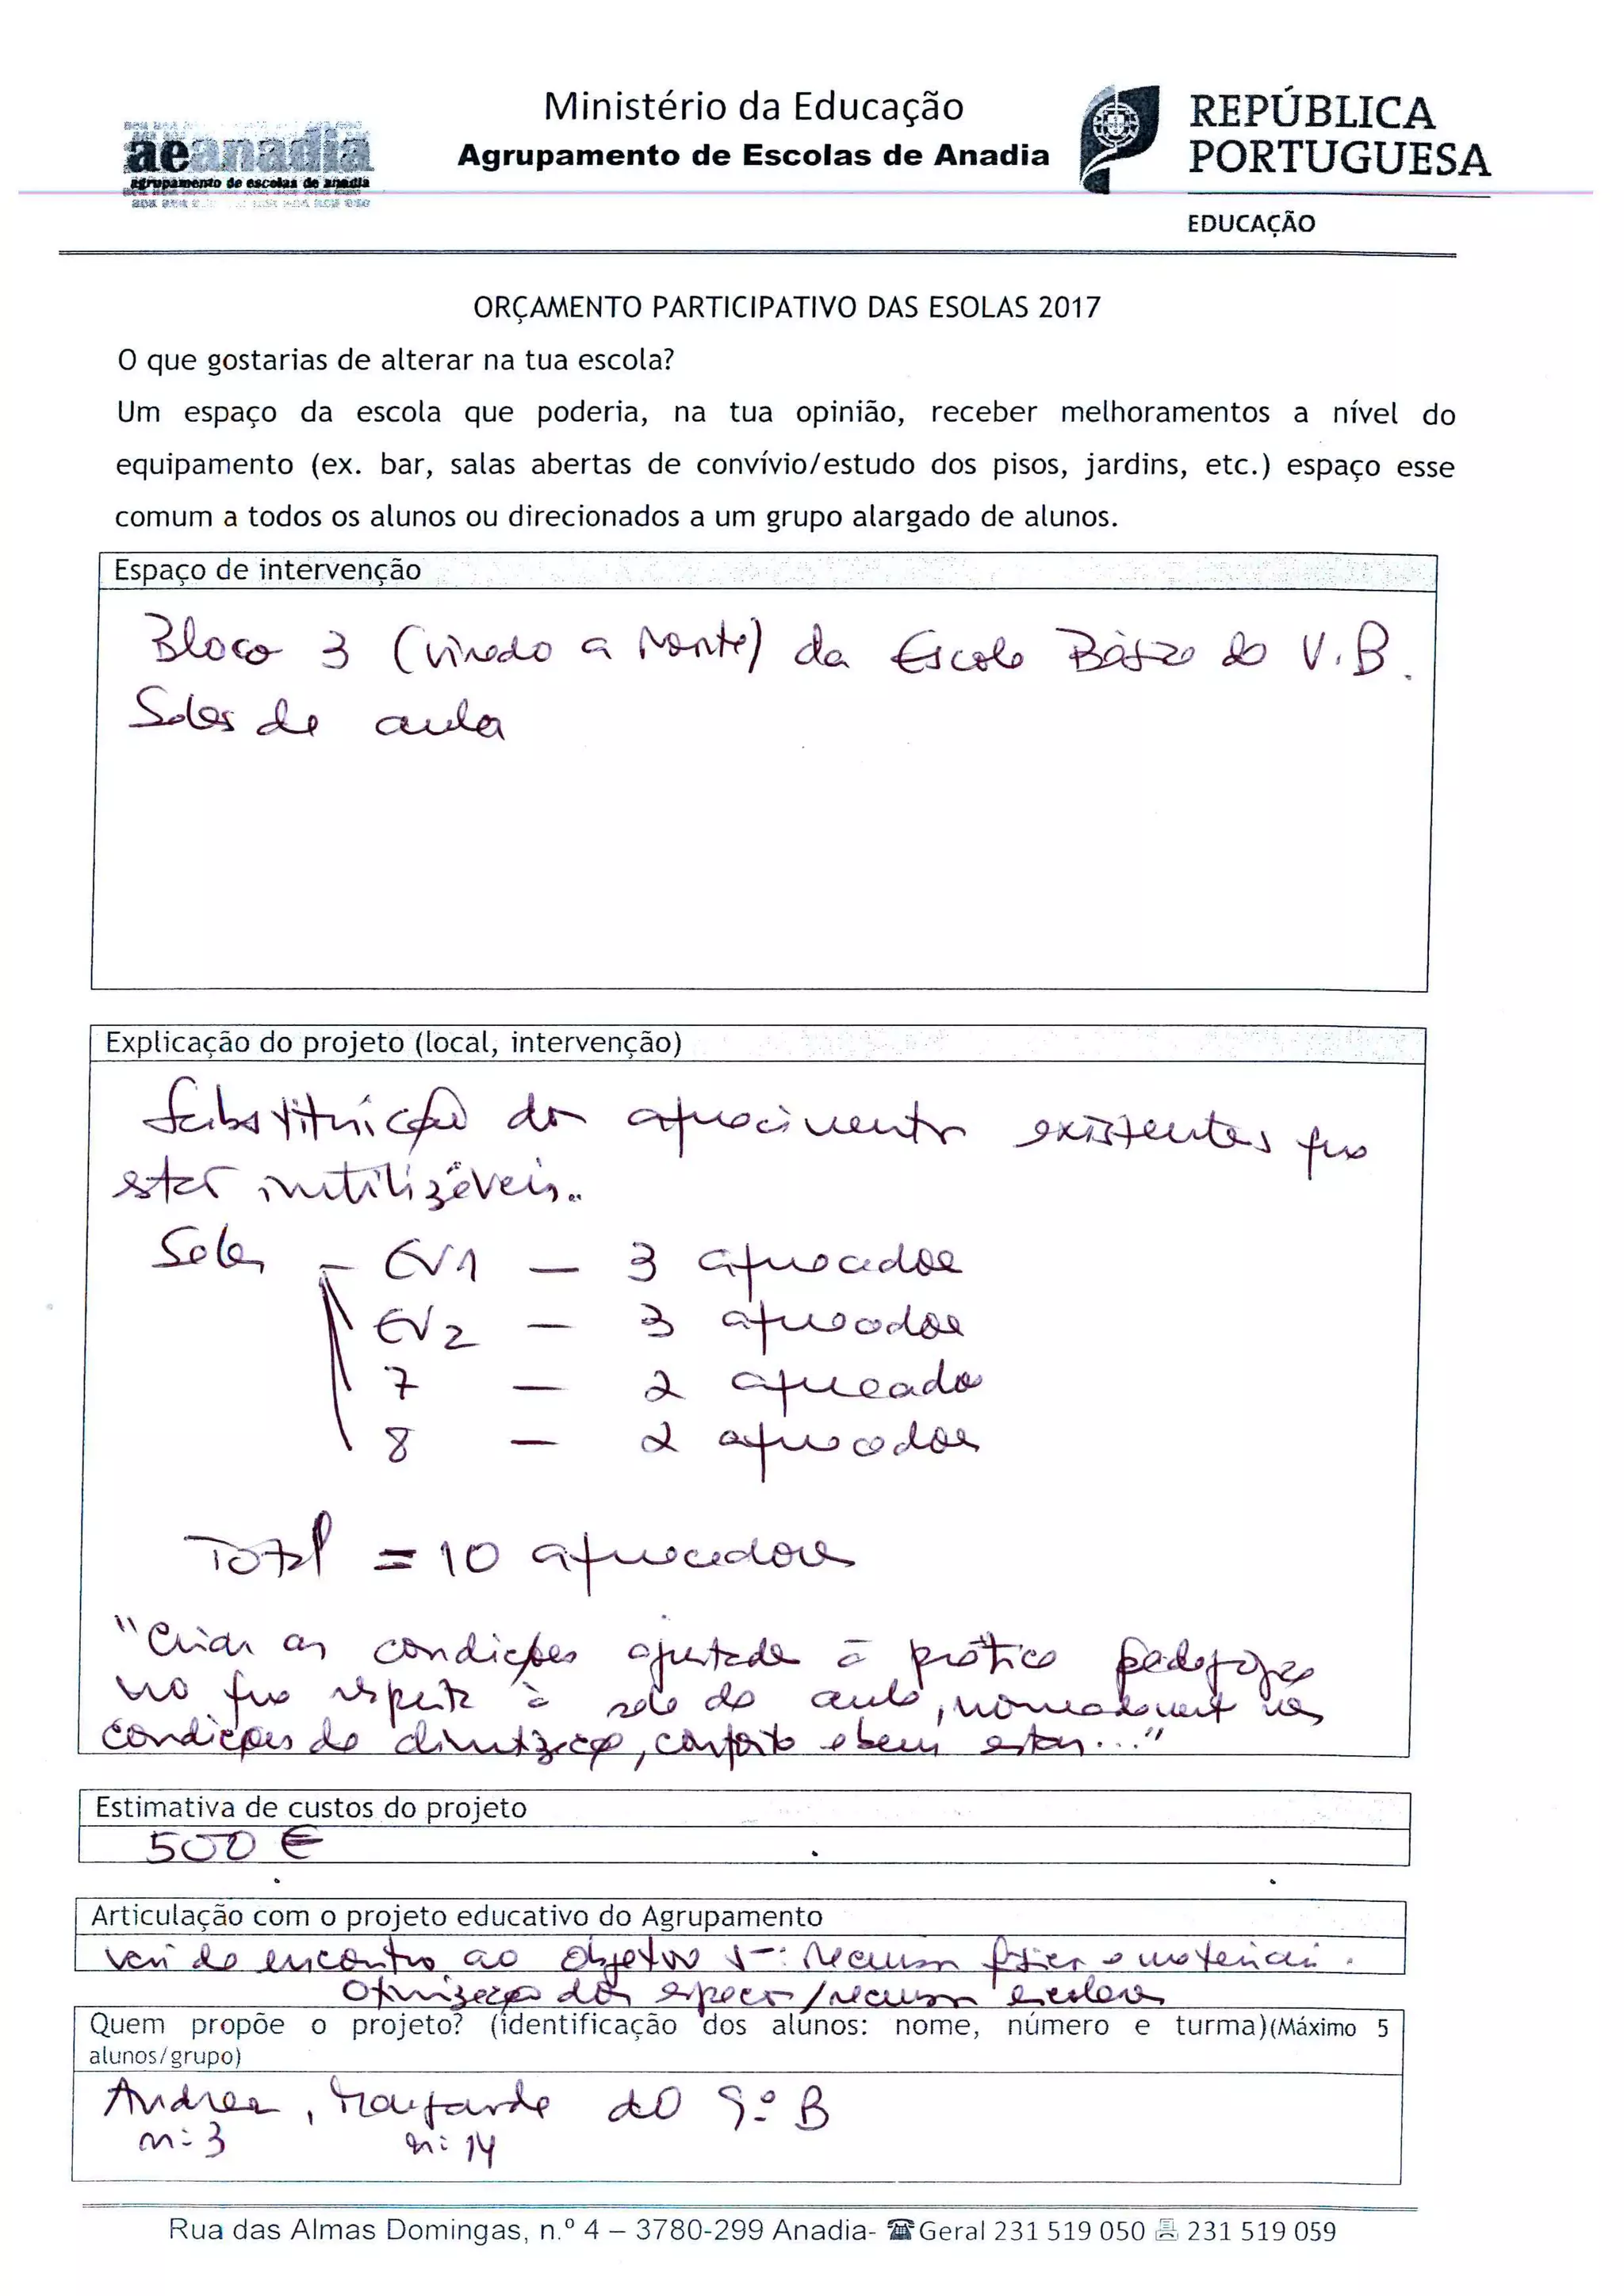 Ministério da Educação
Agrupamento de Escolas de Anadia
aeanadia
agrupamento de escolas de anadia
REPÚBLICA
PORTUGUESA
EDUCAÇÃO
ORÇAMENTO PARTICIPATIVO DAS ESOLAS 2017
O que gostarias de alterar na tua escola?
Um espaço da escola que poderia, na tua opinião, receber melhoramentos a nível do
equipamento (ex. bar, salas abertas de convívio/estudo dos pisos, jardins, etc.) espaço esse
comum a todos os alunos ou direcionados a um grupo alargado de alunos.
Espaço de intervenção
Bloco 3 (virado a Norte) da Escola Básica de V.B.
Salas de aula
Explicação do projeto (local, intervenção)
Substituição dos aquecimentos existentes por
estar inutilizáveis..
Salas – EV1 – 3 aquecedores
EV2 – 3 aquecedores
7 – 2 aquecedores
8 – 2 aquecedores
Total = 10 aquecedores
"Criar as condições ajustadas à prática pedagógica
no que respeita à sala de aula, nomeadamente nas
condições de climatização, conforto e bem estar..."
Estimativa de custos do projeto
500 €
Articulação com o projeto educativo do Agrupamento
vai de encontro ao objetivo : Recursos físicos e materiais.
Otimização dos espaços/recursos escolares
Quem propõe o projeto? (identificação dos alunos: nome, número e turma)(Máximo 5
alunos/grupo)
Andrea, Margarida do 9.º B
nº 3 nº 14
Rua das Almas Domingas, n.º 4 – 3780-299 Anadia- ☎Geral 231 519 050 231 519 059